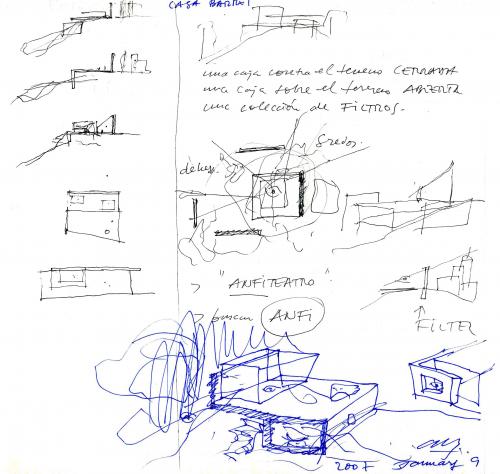 CASA BARRET
una caja contra el terreno CERRADA
una caja sobre el terreno ABIERTA
una colección de FILTROS.
Gredos.
> "ANFITEATRO"
> buscar ANFI
FILTER
2007
9